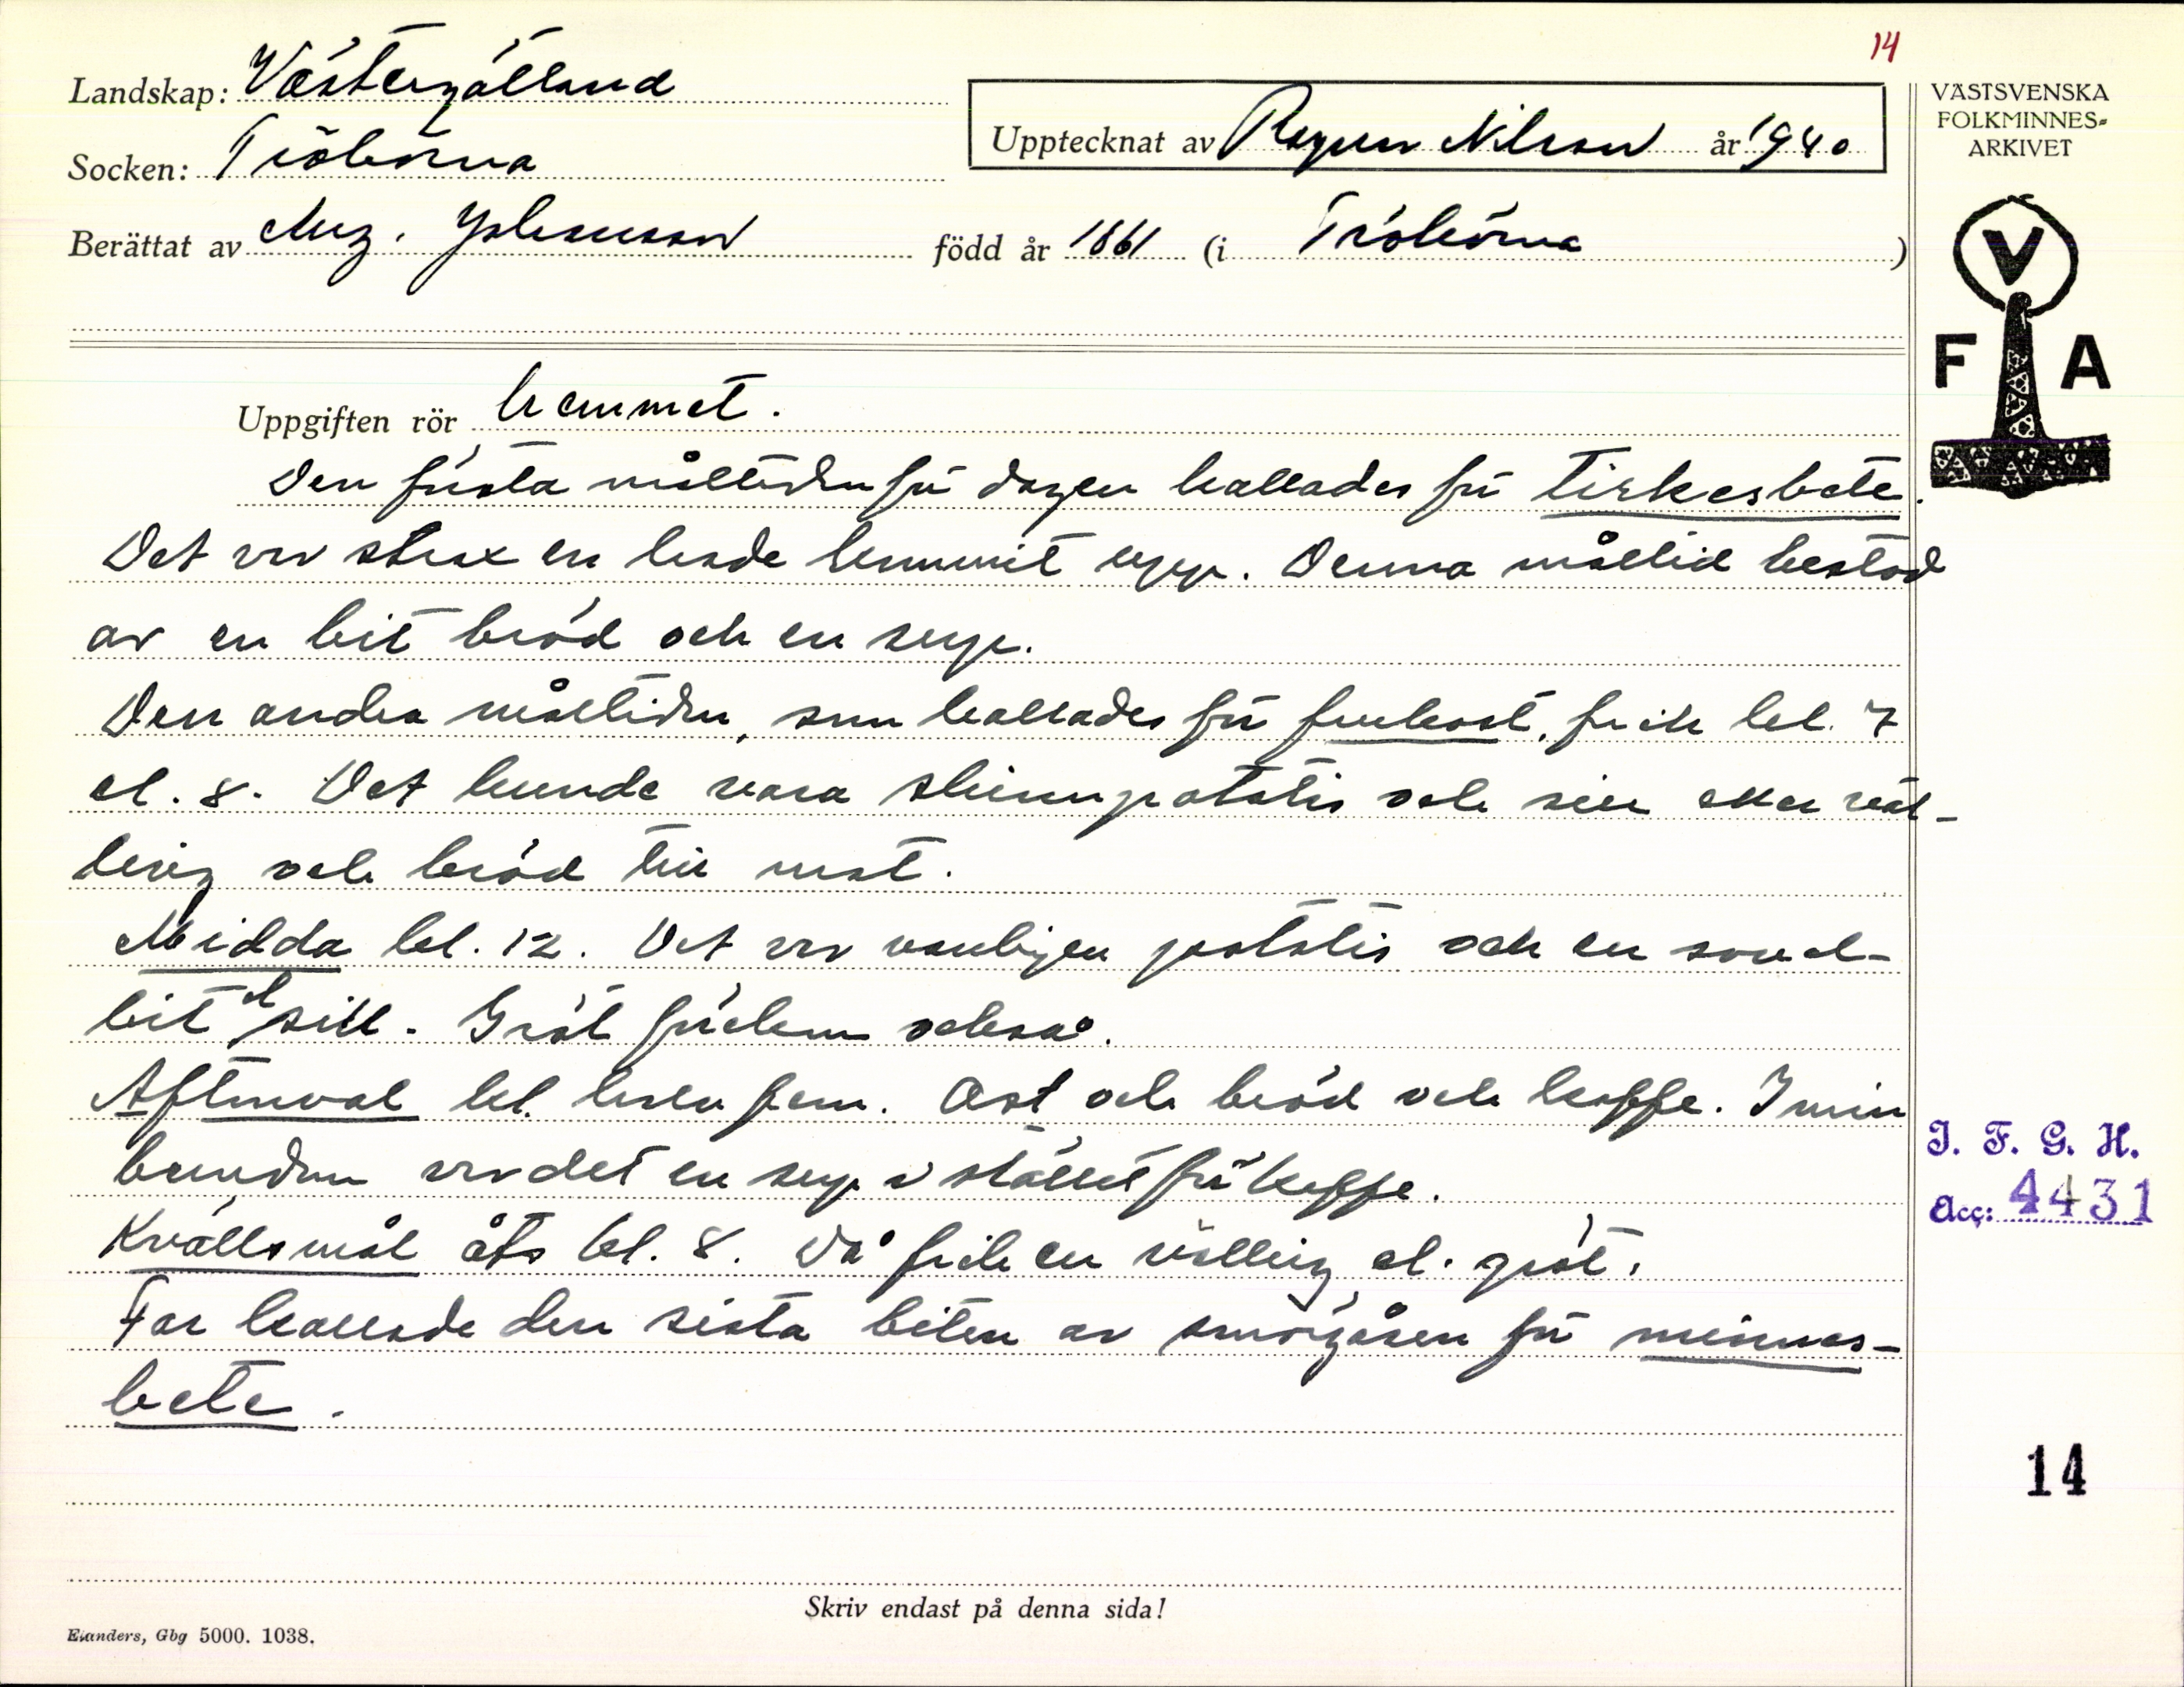 14
Landskap: Västergötland
Socken: Trökörna
Upptecknat av Ragnar Nilsson år 1940
Berättat av Aug. Johansson född år 1861 (i Trökörna)
VÄSTSVENSKA
FOLKMINNES-
ARKIVET
V
F A
Uppgiften rör hemmet.
Den första måltiden för dagen kallades för tiskesbete.
Det var strax en hade kommit upp. Denna måltid bestod
av en bit bröd och en sup.
Den andra måltiden, som kallades för frukost, fick kl. 7
el. 8. Det kunde vara skinnpotatis och sill eller väl-
ling och bröd till mat.
Midda kl. 12. Det var vanligen potatis och en sovel-
bit el sill. Gröt förekom också.
Aftonval kl. halv fem. Ost och bröd och kaffe. I min
barndom var det en sup i stället för kaffe.
Kvällsmål åts kl. 8. Då fick en välling el. gröt.
Far kallade den sista biten av smörgåsen för minnes-
bete.
J. F. G. H.
Acc: 4431
14
Skriv endast på denna sida!
Elanders, Gbg 5000. 1038.